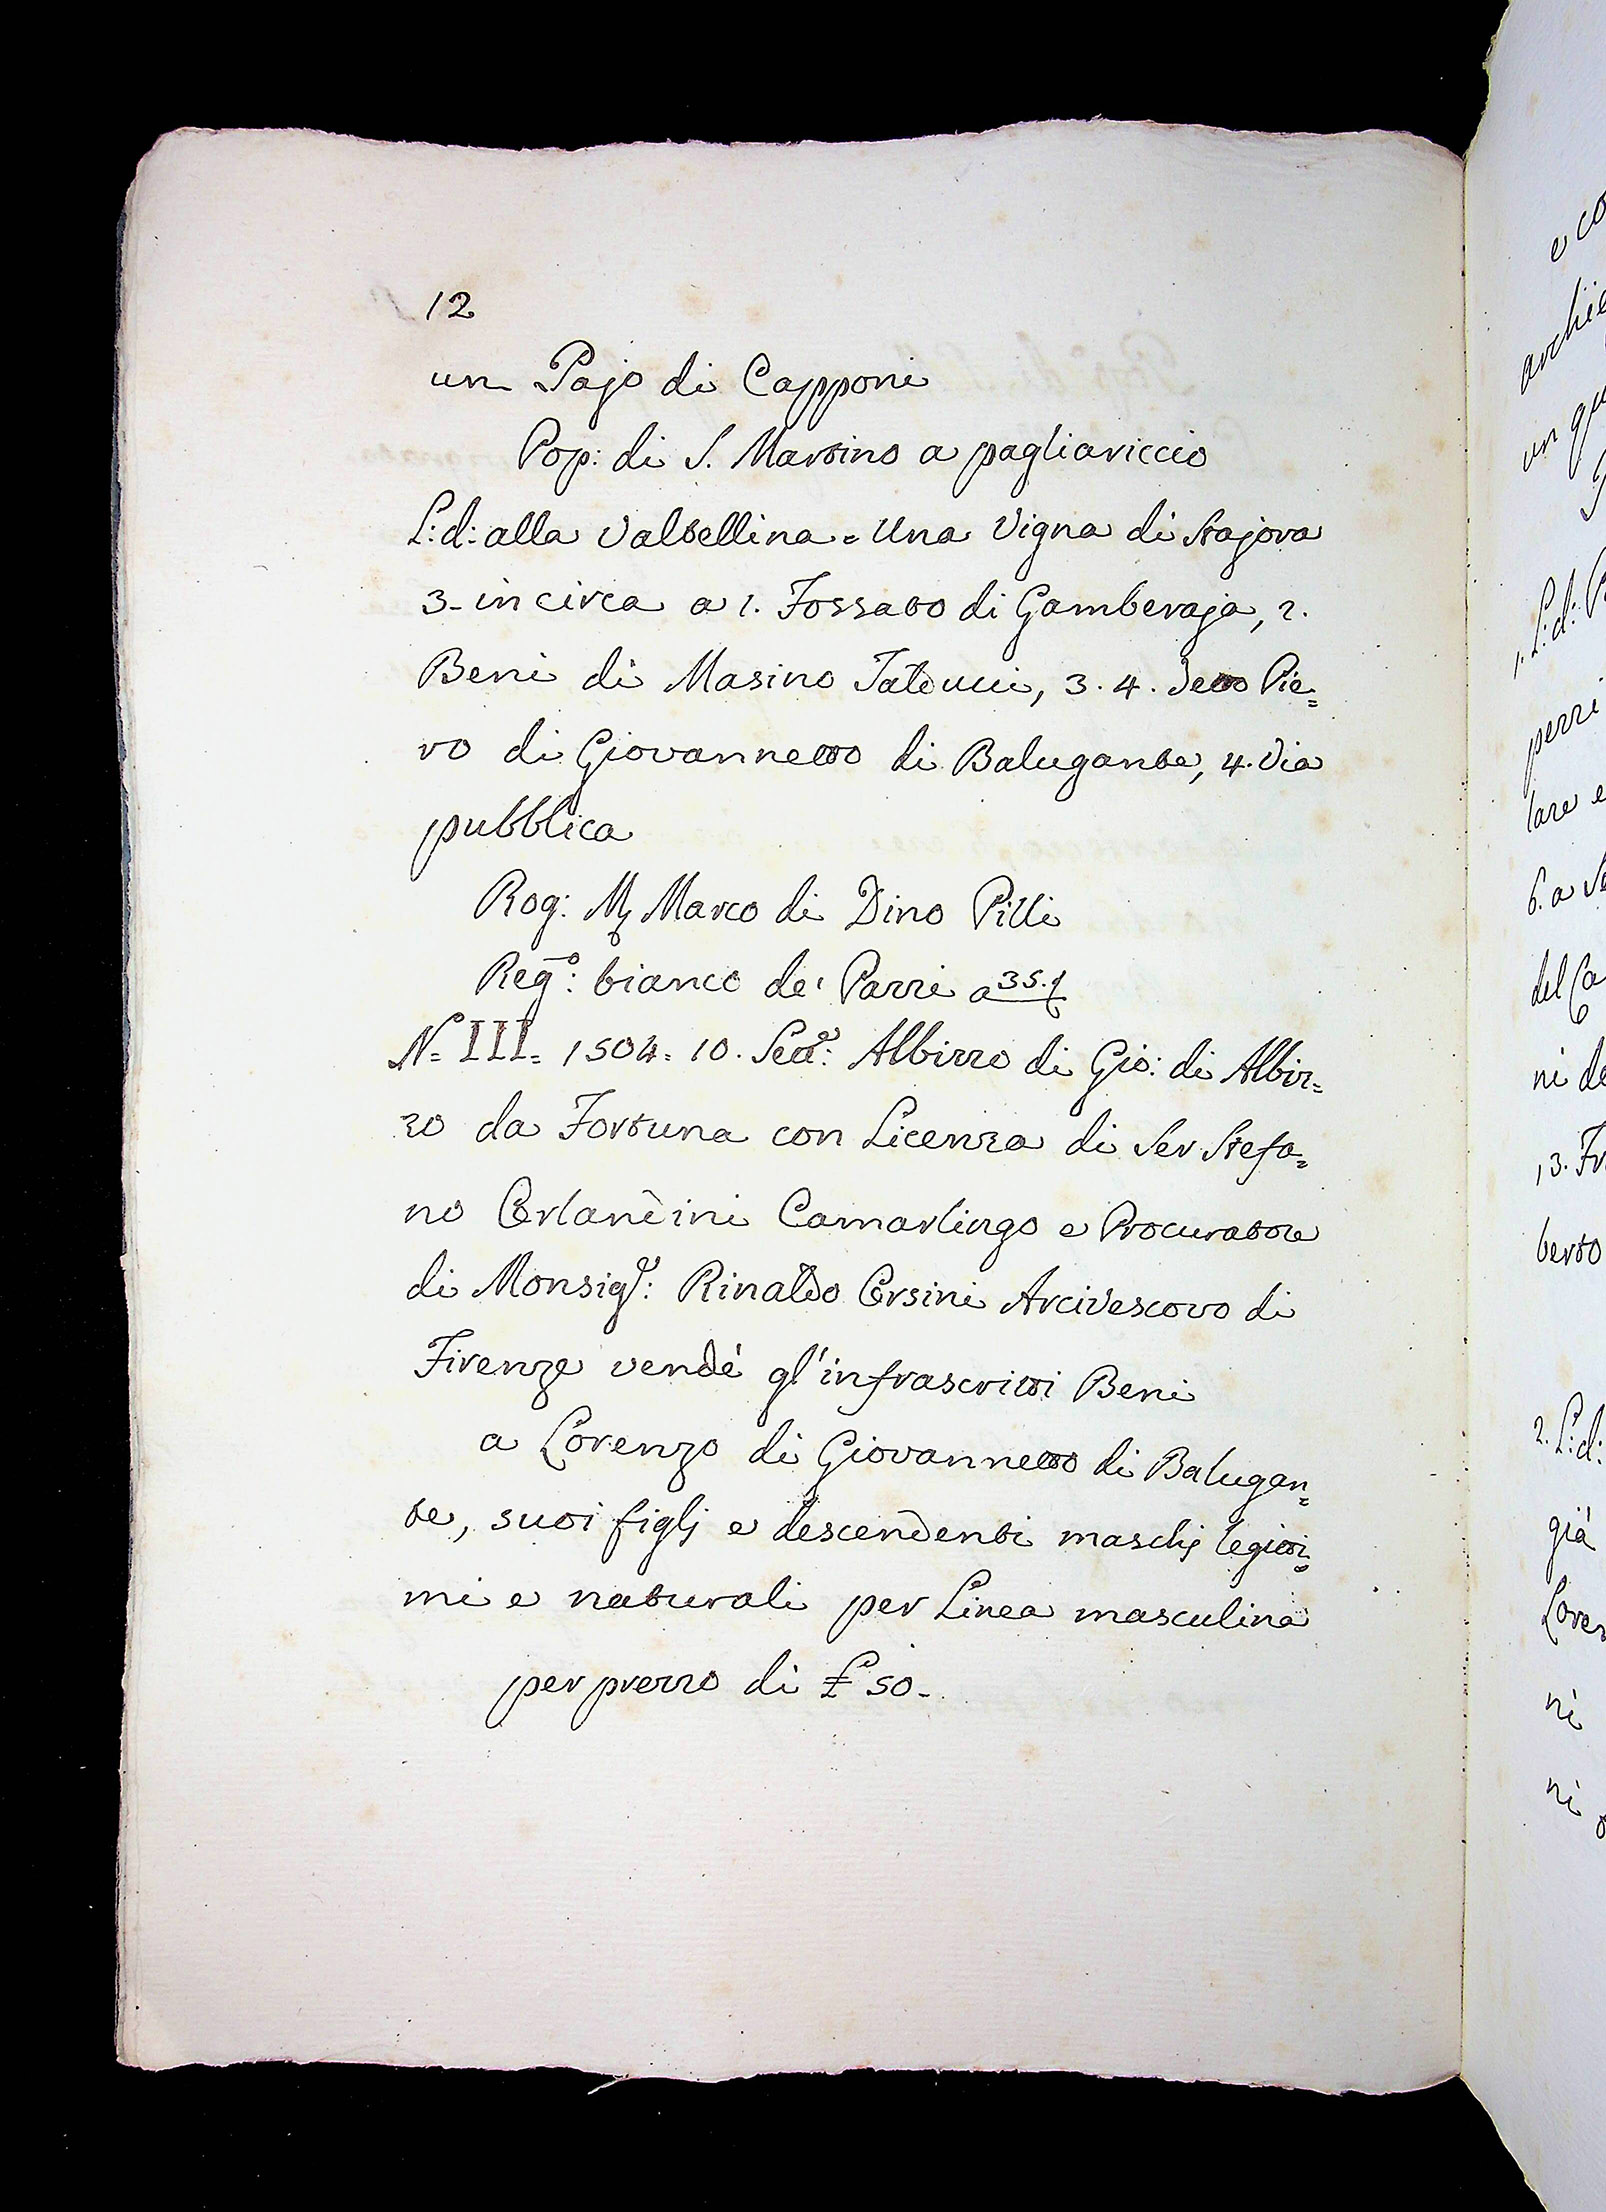 12
un Pajo di Capponi
Pop: di S. Martino a pagliariccio
L: d: alla Valtellina = Una Vigna di Stajora
3- in circa a 1. Fossato di Gamberaja, 2.
Beni di Masino Talducci, 3. 4. detto Pie=
ro di Giovannetto di Balugante, 4. Via
pubblica
Rog: Marco di Dino Pilli
Reg.º: bianco de' Pazzi a 35.
N= III= 1504= 10. Albizzo di Gio: di Albiz=
zo da Fortuna con Licenza di Ser Stefa=
no Orlandini Camarlingo e Procuratore
di Monsig.r: Rinaldo Orsini Arcivescovo di
Firenze vendé gl'infrascritti Beni
a Lorenzo di Giovannetto di Balugan=
te, suoi figlj e descendenti maschj legitti=
mi e naturali per Linea masculina
per prezzo di £ 50-
e co
archi
un qu
1. L: d: P
perri
lare e
6. a Se
del Ca
ni de
, 3. Fr
berto
2. L: d:
già
Loren
ni
ni